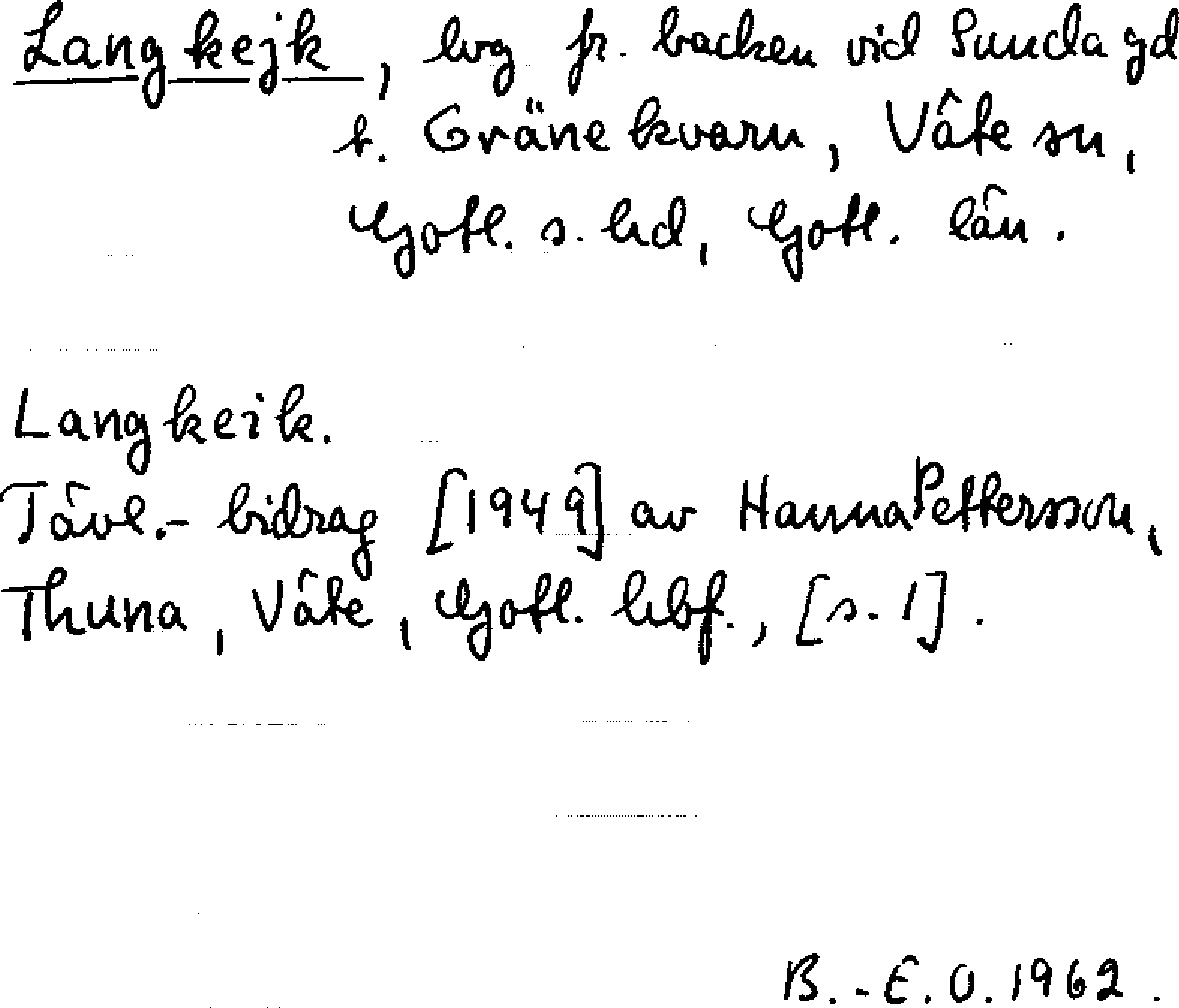 Langkejk, lvg fr. backen vid Sunda gd
t. Gräne kvarn, Väte sn,
Gotl. s. hd, Gotl. län.
Langkeik.
Tävl.- bidrag [1949] av Hanna Pettersson,
Thuna, Väte, Gotl. hbf., [s. 1].
B.-E.O. 1962.